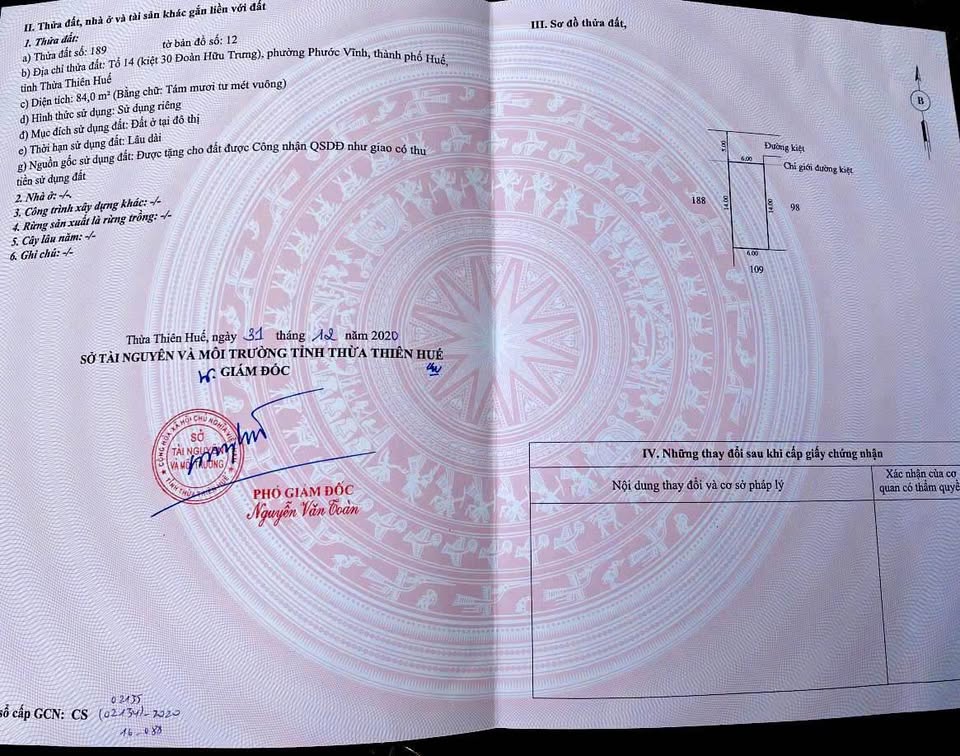 II. Thửa đất, nhà ở và tài sản khác gắn liền với đất
1. Thửa đất:
a) Thửa đất số: 189 tờ bản đồ số: 12
b) Địa chỉ thửa đất: Tổ 14 (kiệt 30 Đoàn Hữu Trưng), phường Phước Vĩnh, thành phố Huế,
tỉnh Thừa Thiên Huế
c) Diện tích: 84,0 m² (Bằng chữ: Tám mươi tư mét vuông)
d) Hình thức sử dụng: Sử dụng riêng
đ) Mục đích sử dụng đất: Đất ở tại đô thị
e) Thời hạn sử dụng đất: Lâu dài
g) Nguồn gốc sử dụng đất: Được tặng cho đất được Công nhận QSDĐ như giao có thu
tiền sử dụng đất
2. Nhà ở: -/-
3. Công trình xây dựng khác: -/-
4. Rừng sản xuất là rừng trồng: -/-
5. Cây lâu năm: -/-
6. Ghi chú: -/-
Thừa Thiên Huế, ngày 31 tháng 12 năm 2020
SỞ TÀI NGUYÊN VÀ MÔI TRƯỜNG TỈNH THỪA THIÊN HUẾ
GIÁM ĐỐC
CỘNG HÒA XÃ HỘI CHỦ NGHĨA
SỞ
TÀI NGUYÊN
VÀ MÔI TRƯỜNG
TỈNH THỪA THIÊN HUẾ
PHÓ GIÁM ĐỐC
Nguyễn Văn Toàn
số cấp GCN: CS (02134)-2020
02135
16-088
III. Sơ đồ thửa đất,
B
5.00
Đường kiệt
6.00
Chỉ giới đường kiệt
188
14.00
14.00
98
6.00
109
IV. Những thay đổi sau khi cấp giấy chứng nhận
Nội dung thay đổi và cơ sở pháp lý
Xác nhận của cơ
quan có thẩm quyề